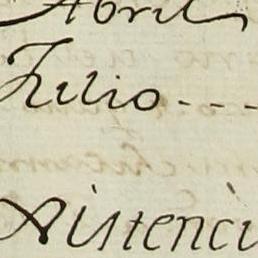 Abril
Julio---
Aistenci